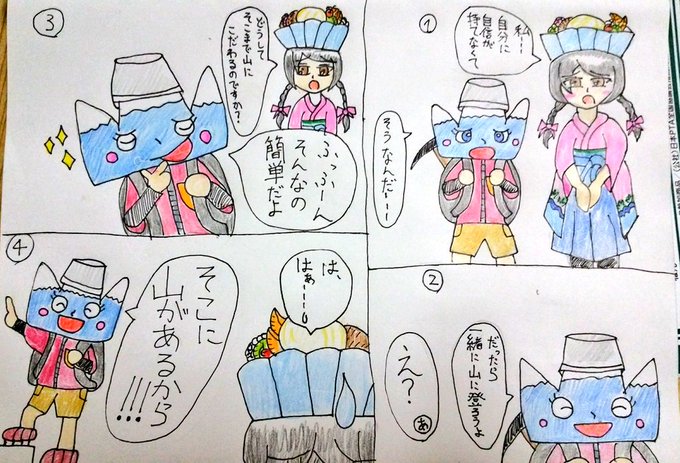 ①
私…
自分に
自信が
持てなくて
そうなんだ〜〜
②
だったら
一緒に山に登ろうよ
え?
あ
③
どうして
そこまで山に
こだわるのですか?
ふっふーん
そんなの
簡単だよ
④
そこに
山があるから
!!!!
は、
はぁ〜〜。
(公社)日本PTA全国